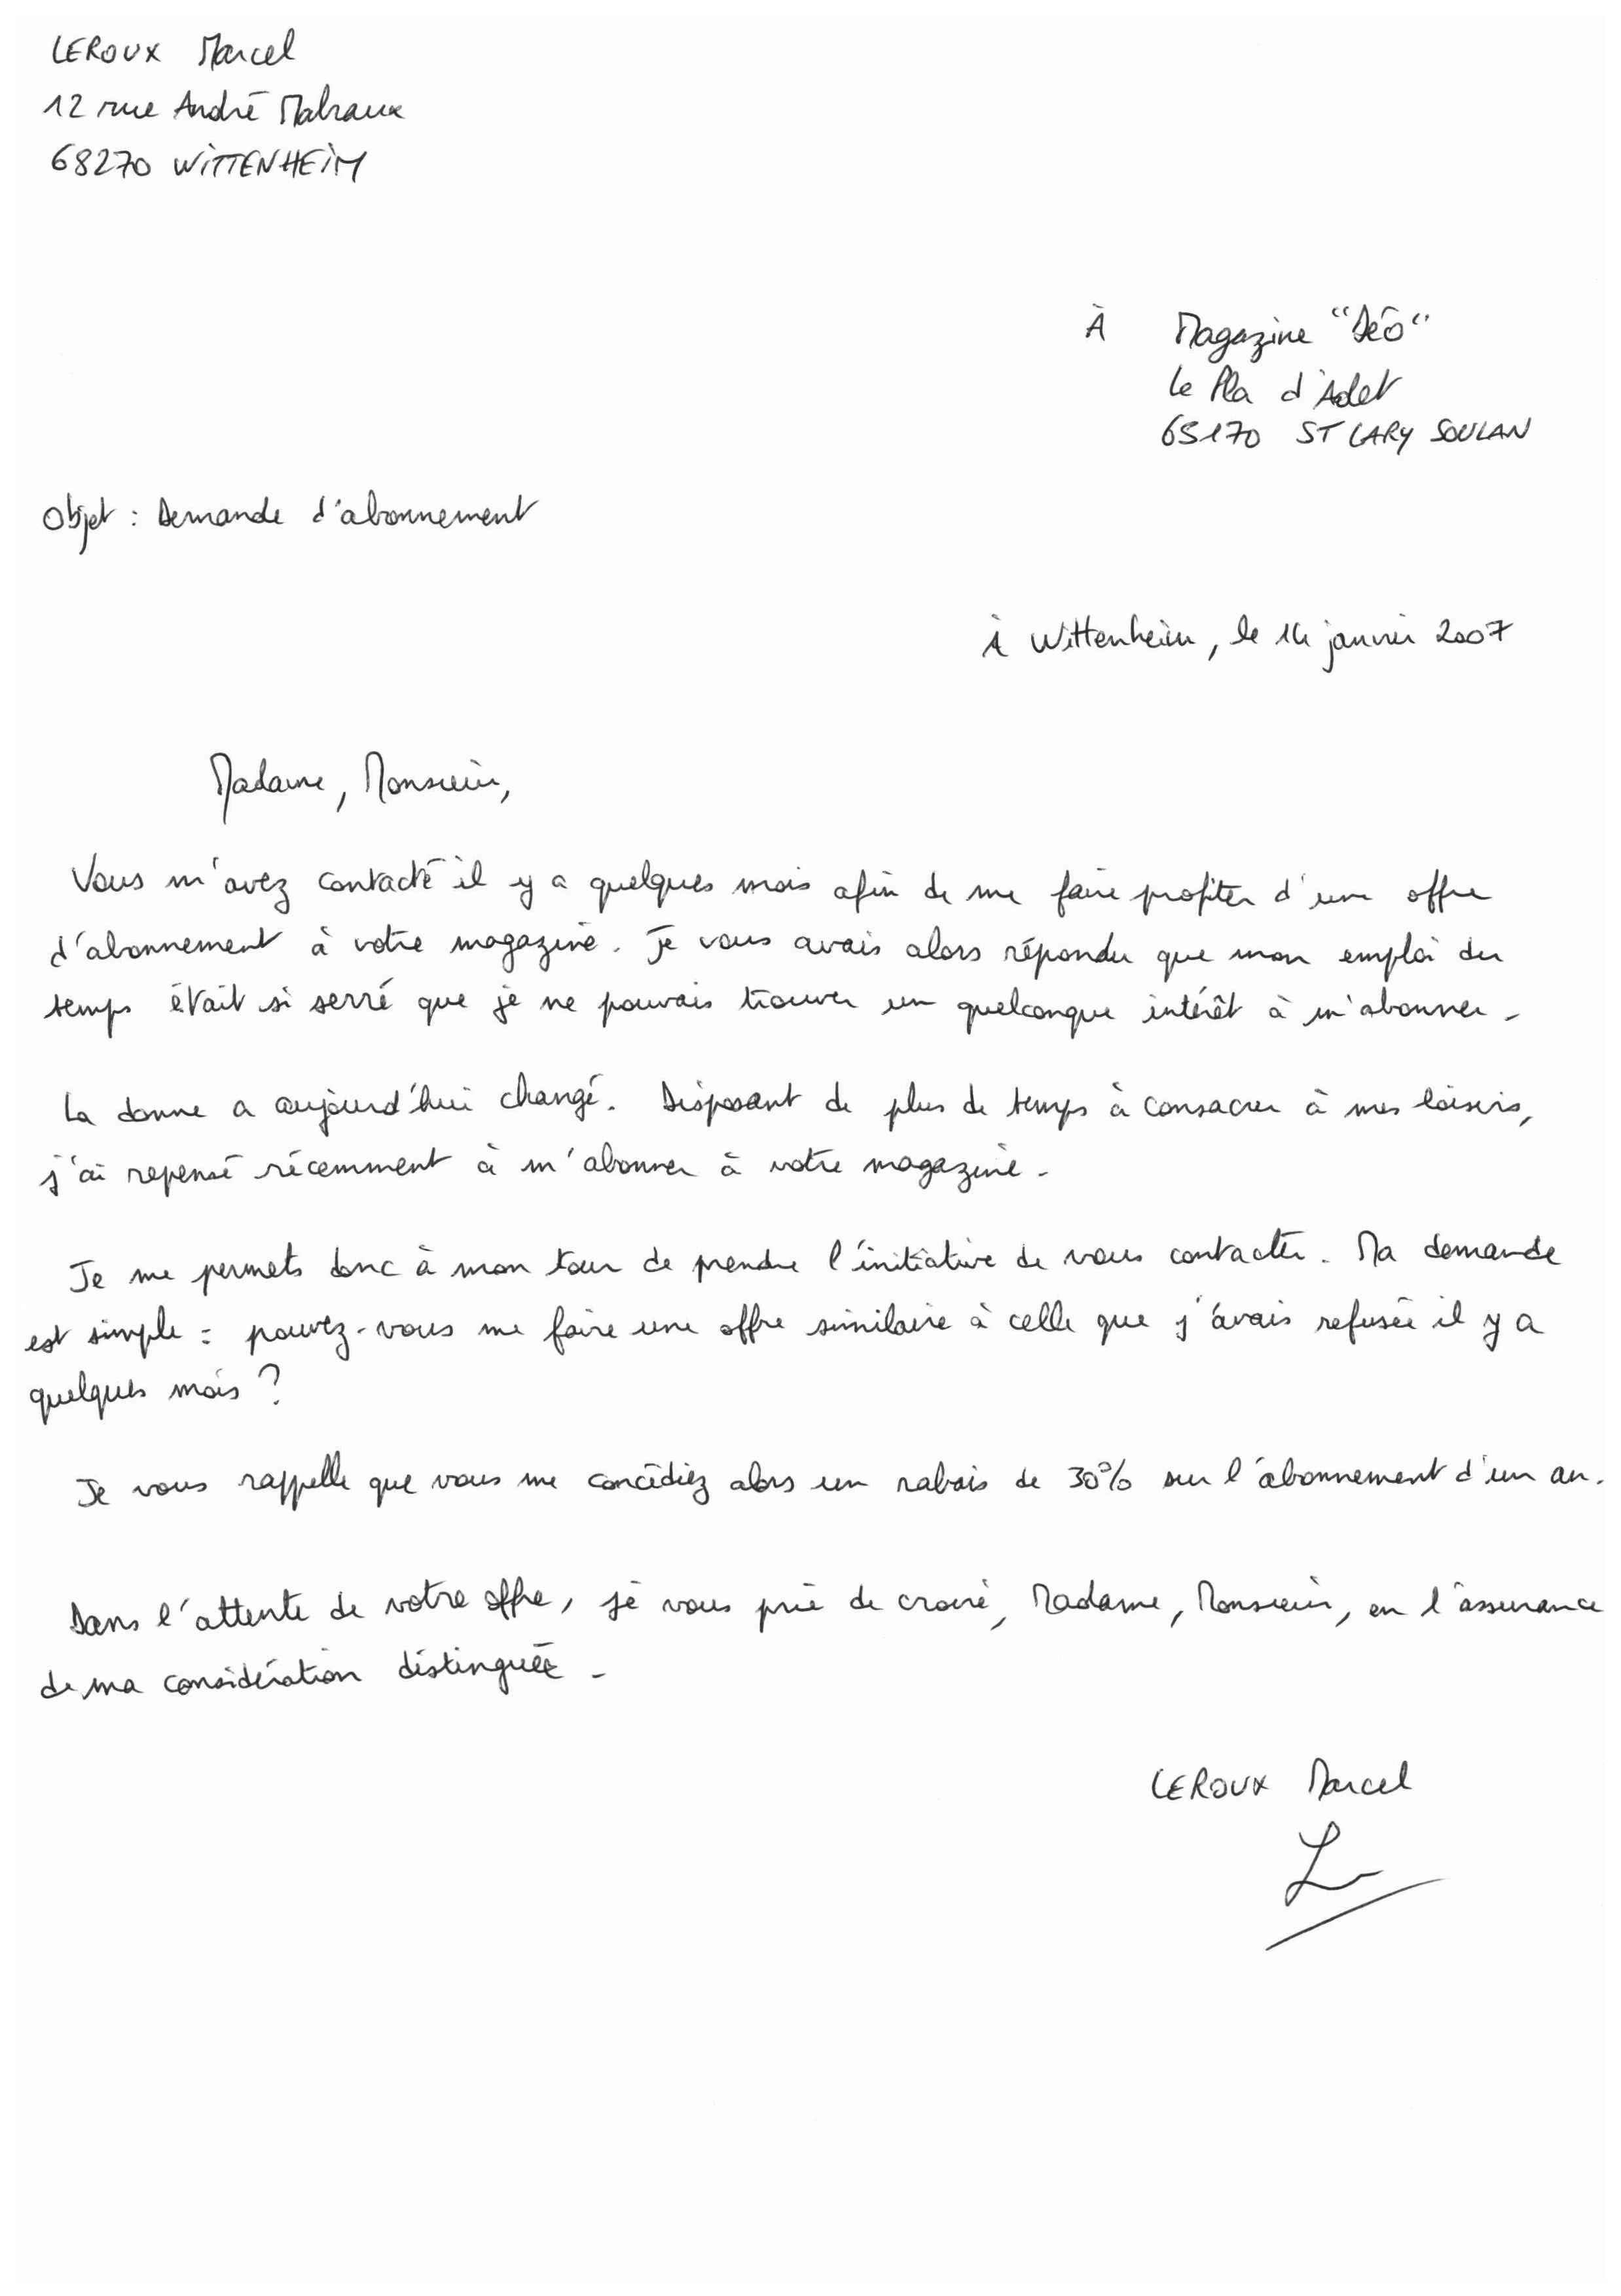 LEROUX Marcel
12 rue André Malraux
68270 WITTENHEIM
À Magazine "Déo"
Le Pla d'Adet
65170 ST LARY SOULAN
Objet : Demande d'abonnement
À Wittenheim, le 14 janvier 2007
Madame, Monsieur,
Vous m'avez contacté il y a quelques mois afin de me faire profiter d'une offre
d'abonnement à votre magazine. Je vous avais alors répondu que mon emploi du
temps était si serré que je ne pouvais trouver un quelconque intérêt à m'abonner.
La donne a aujourd'hui changé. Disposant de plus de temps à consacrer à mes loisirs,
j'ai repensé récemment à m'abonner à votre magazine.
Je me permets donc à mon tour de prendre l'initiative de vous contacter. Ma demande
est simple : pouvez-vous me faire une offre similaire à celle que j'avais refusée il y a
quelques mois ?
Je vous rappelle que vous me concédiez alors un rabais de 30% sur l'abonnement d'un an.
Dans l'attente de votre offre, je vous prie de croire, Madame, Monsieur, en l'assurance
de ma considération distinguée.
LEROUX Marcel